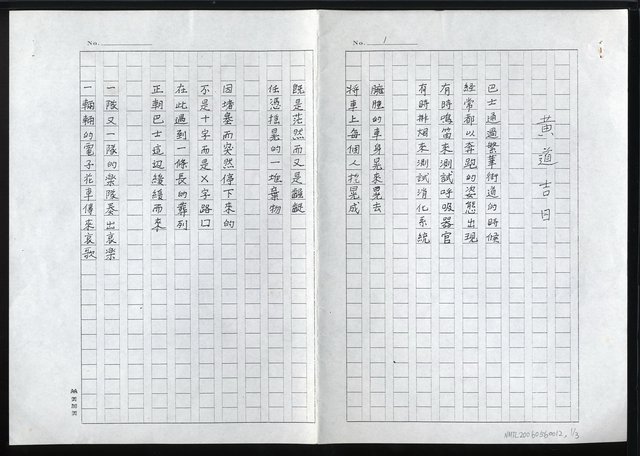 No. 1
黃道吉日
巴士通過繁華街道的時候
經常都以奔跑的姿態出現
有時鳴笛來測試呼吸器官
有時排烟來測試消化系統
臃腫的車身晃來晃去
將車上每個人搖晃成
No.
既是茫然而又是齷齪
任憑搖晃的一堆棄物
因堵塞而突然停下來的
不是十字而是X字路口
在此遇到一條長的葬列
正朝巴士這邊緩緩而來
一隊又一隊的樂隊奏出哀樂
一輛輛的電子花車傳來哀歌
NMTL20060560012, 1/3